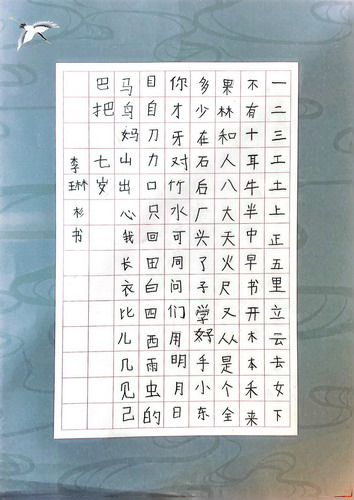 一二三工土上正五里立云去女下
不有十耳牛半中早书开木本禾来
果林和人八大天火尺又从是个全
多少在石后厂头了子学好手小东
你才牙对竹水可同问们用明月日
目自刀力口只回田白四西雨虫的
马鸟妈山出心我长衣比儿几见己
巴把 七岁
李琳杉书